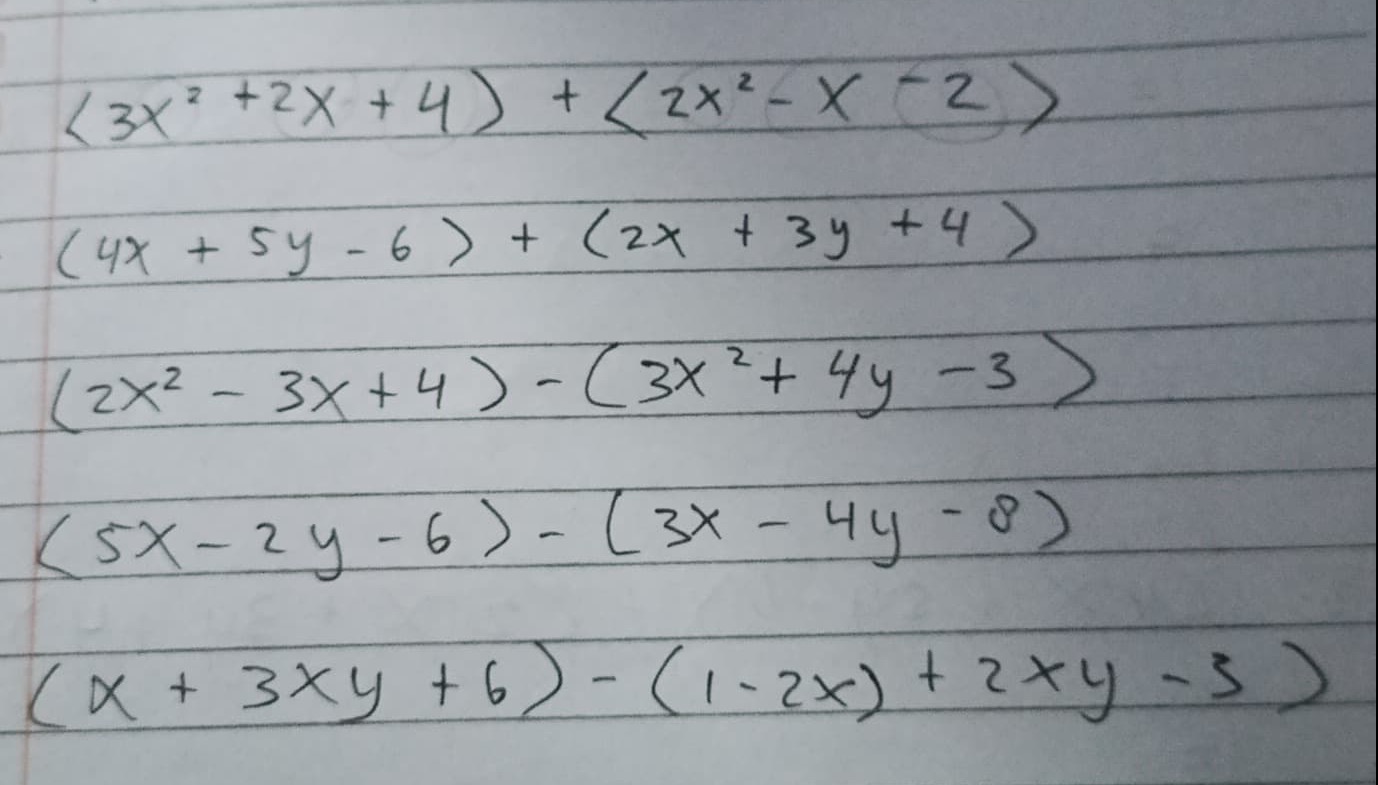 (3x² + 2x + 4) + (2x² - x - 2)
(4x + 5y - 6) + (2x + 3y + 4)
(2x² - 3x + 4) - (3x² + 4y - 3)
(5x - 2y - 6) - (3x - 4y - 8)
(x + 3xy + 6) - (1 - 2x) + 2xy - 3)